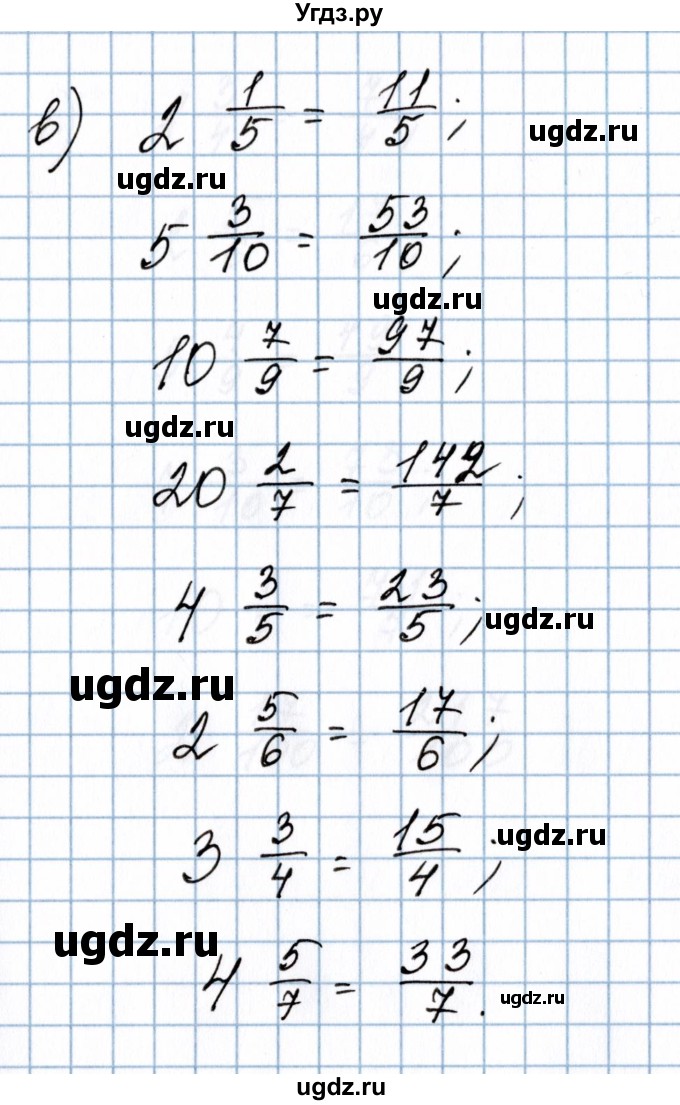 Угдз.ру
в) 2 1/5 = 11/5;
ugdz.ru
ugdz.ru
5 3/10 = 53/10;
ugdz.ru
10 7/9 = 97/9;
ugdz.ru
20 2/7 = 142/7;
4 3/5 = 23/5;
ugdz.ru
ugdz.ru
2 5/6 = 17/6;
3 3/4 = 15/4;
ugdz.ru
ugdz.ru
4 5/7 = 33/7.
ugdz.ru
ugdz.ru